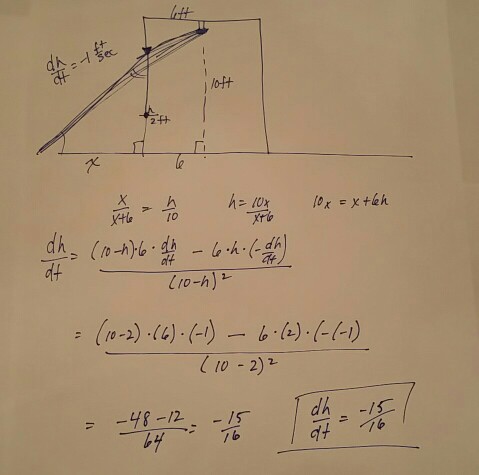 6ft
dh/dt = -1 ft/sec
10ft
h/2ft
x 6
x/(x+6) = h/10 h = 10x/(x+6) 10x = x+6h
dh/dt = ((10-h)·6·dh/dt - 6·h·(-dh/dt))/(10-h)²
= ((10-2)·(6)·(-1) - 6·(2)·(-(-1))/(10-2)²
= (-48-12)/64 = -15/16 dh/dt = -15/16